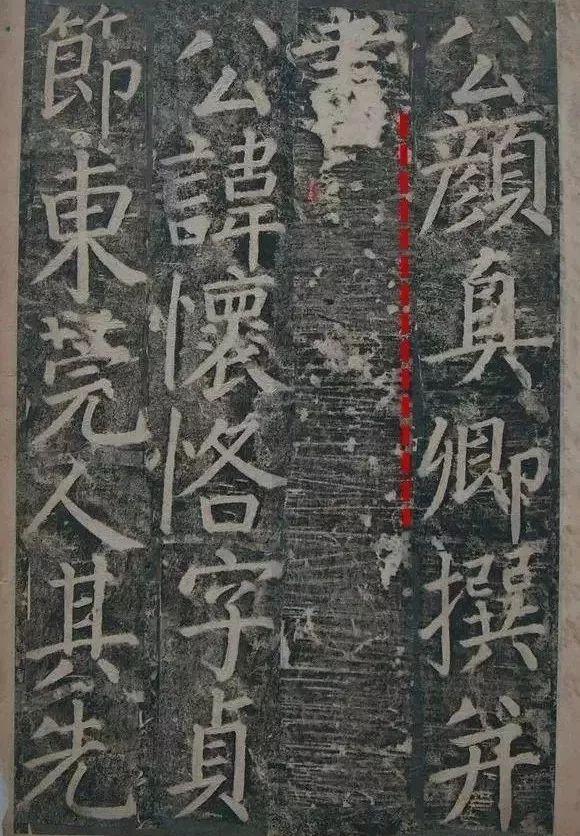 公顔真卿撰并
書
公諱懷恪字貞
節東莞人其先